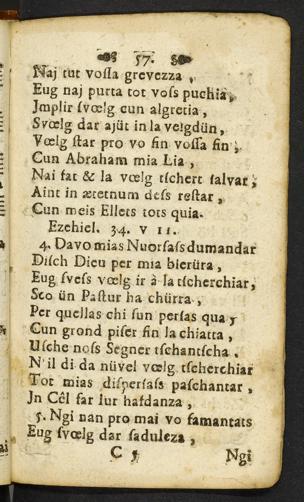 57.
Naj tut vossa grevezza,
Eug naj purta tot voss puchia,
Jmplir svœlg cun algretia,
Svœlg dar ajüt in la velgdün,
Vœlg star pro vo fin vossa fin;
Cun Abraham mia Lia,
Nai fat & la vœlg tschert salvar;
Aint in æternum dess restar,
Cun meis Ellets tots quia.
Ezehiel. 34. v 11.
4. Davo mias Nuorsass dumandar
Disch Dieu per mia bierüra,
Eug svess vœlg ir à la tscherchiar,
Sco ün Pastur ha chürra,
Per quellas chi sun persas qua,
Cun grond piser fin la chiatta,
Usche noss Segner tschantscha.
N'il di da nüvel vœlg tscherchiar
Tot mias dispersass paschantar,
Jn Cêl far lur hasdanza,
5. Ngi nan pro mai vo famantats
Eug svœlg dar saduleza,
C 5 Ngi